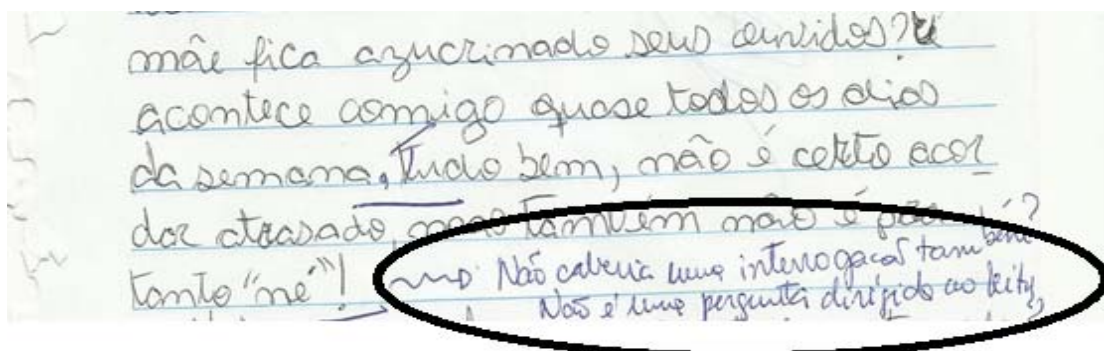 mãe fica azucrinado seus ouvidos?
acontece comigo quase todos os dias
da semana, Tudo bem, não é certo acor
dar atrasado, mas também não é para
tanto "né"!
Não caberia uma interrogação também?
Não é uma pergunta dirigida ao leitor?